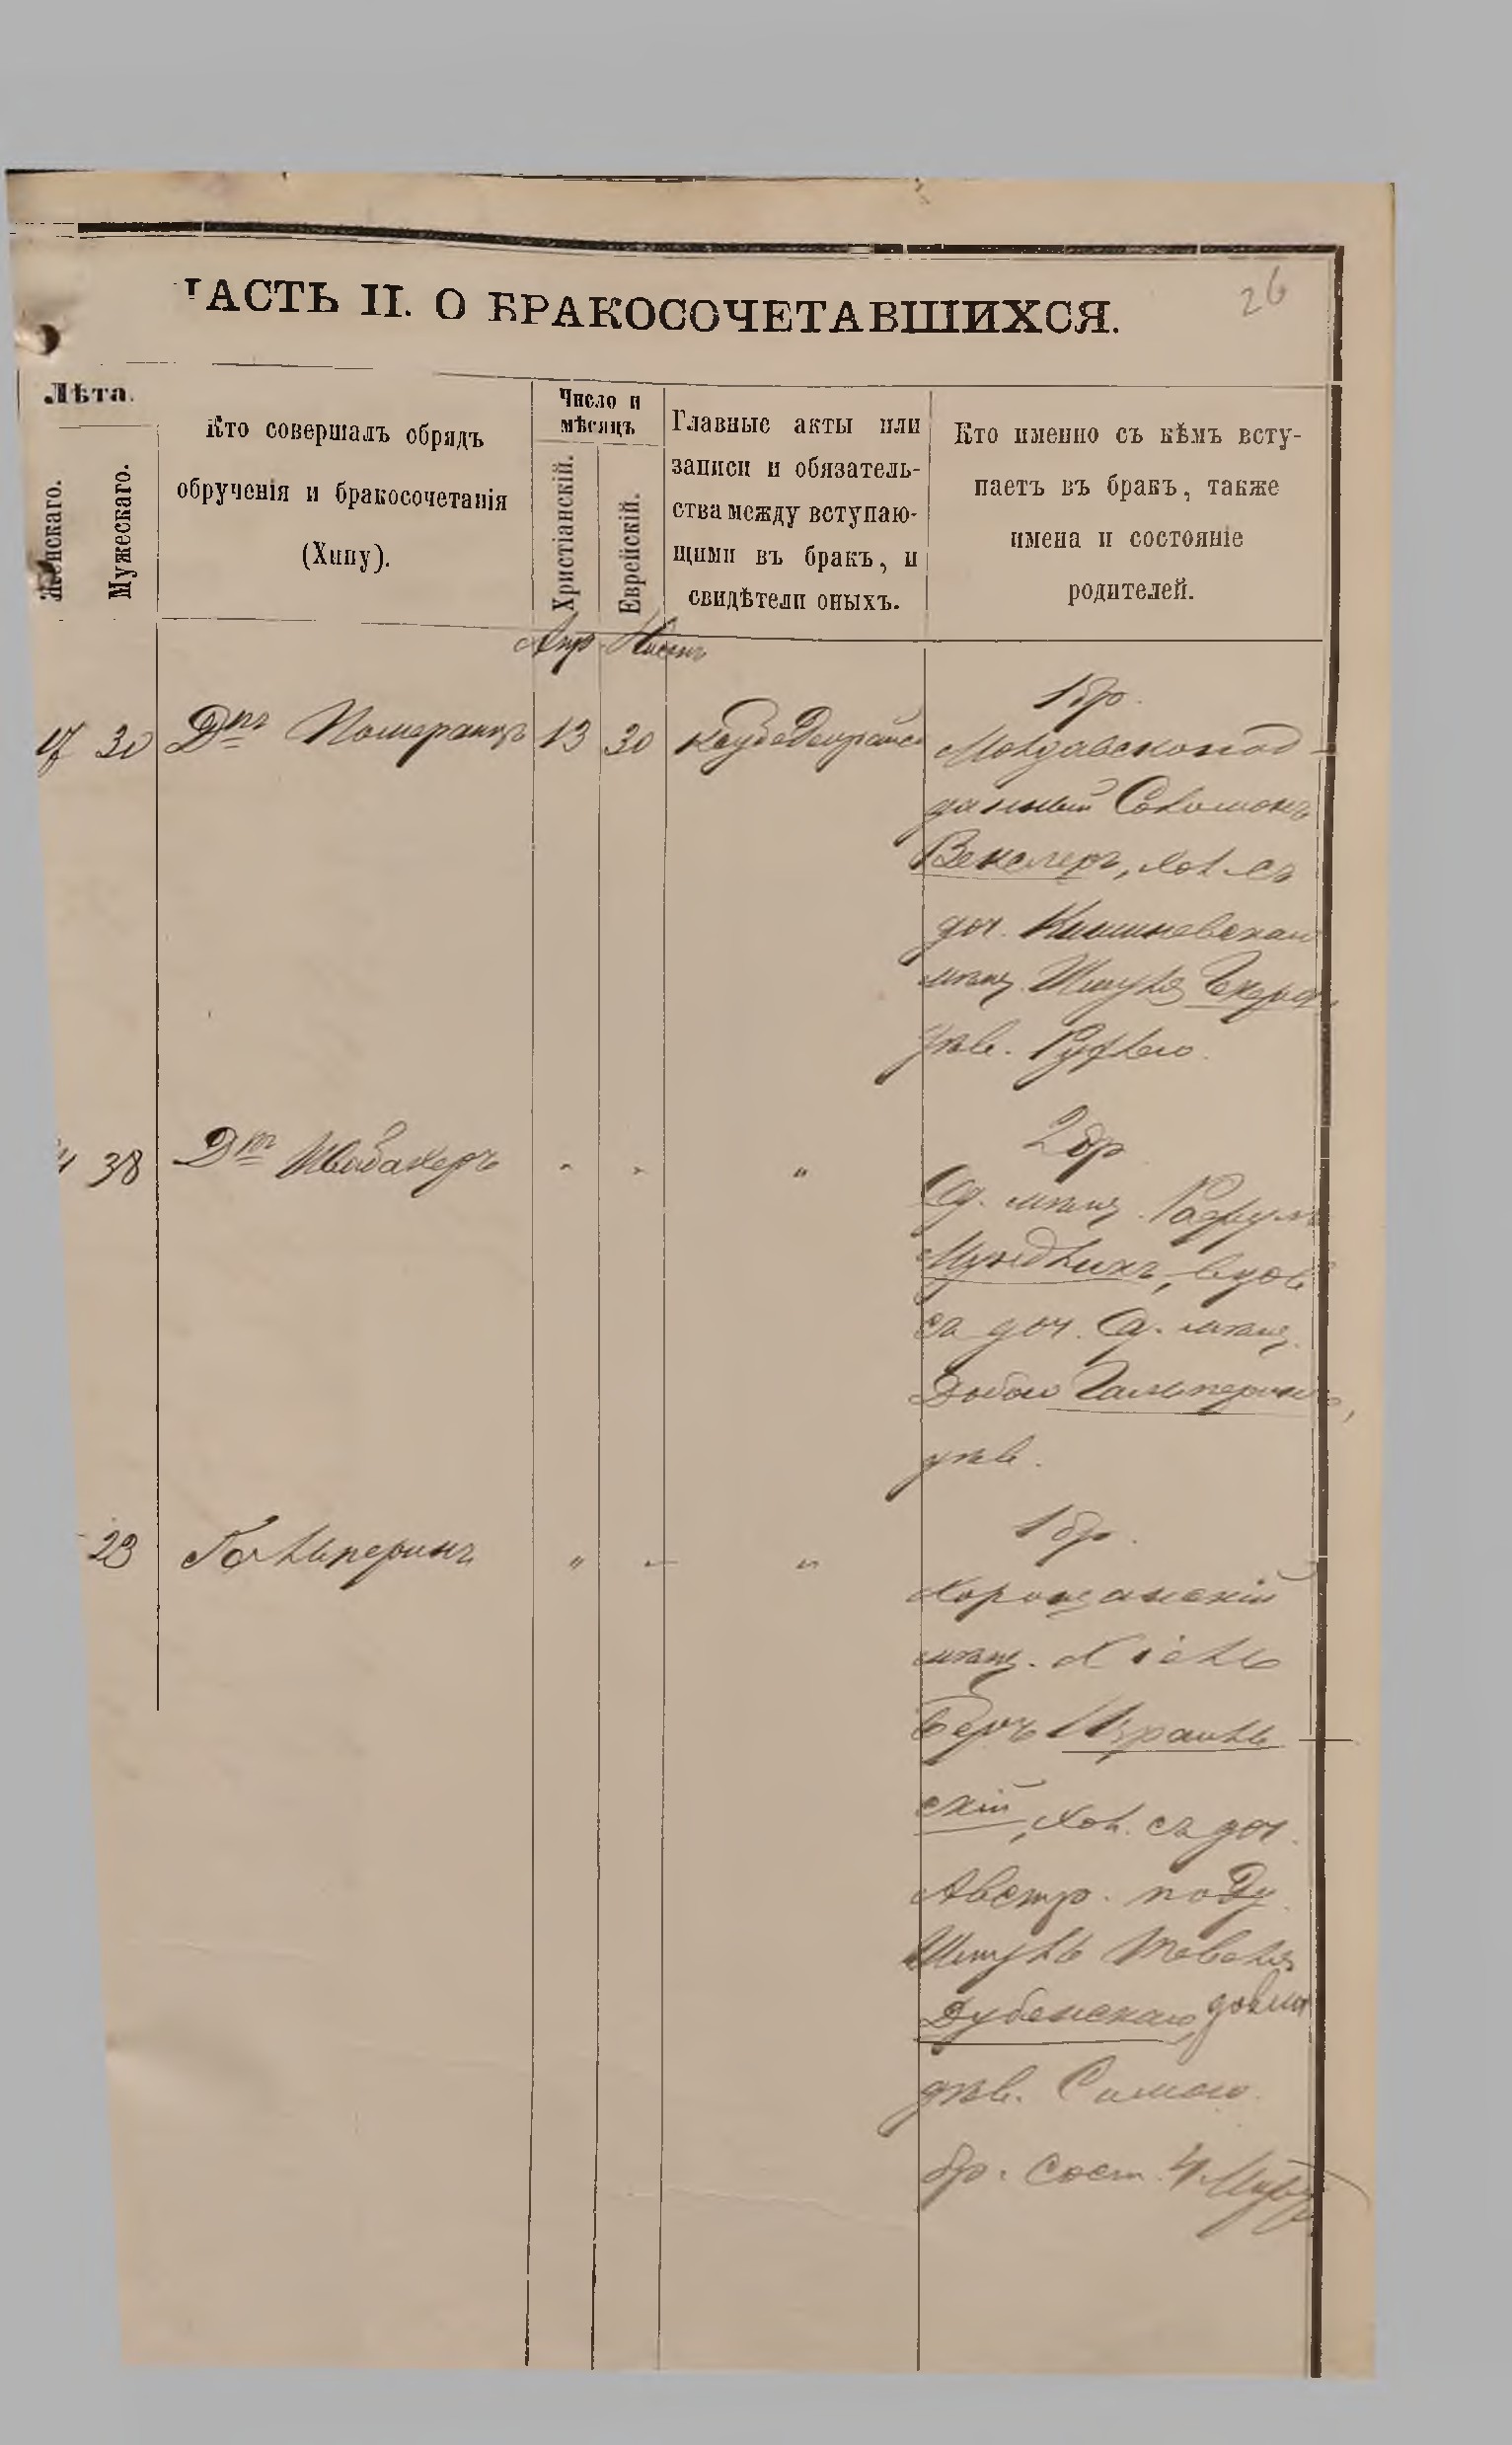 ЧАСТЬ II. О БРАКОСОЧЕТАВШИХСЯ.
26
Лѣта.
Женскаго.
Мужескаго.
Кто совершалъ обрядъ
обрученія и бракосочетанія
(Хипу).
Число и
мѣсяцъ
Христіанскій.
Еврейскій.
Главные акты или
записи и обязатель-
ства между вступаю-
щими въ бракъ, и
свидѣтели оныхъ.
Кто именно съ кѣмъ всту-
паетъ въ бракъ, также
имена и состояніе
родителей.
Апр Нисанъ
1 бр.
30 Dръ Померанцъ 13 30 Молдавскопод-
данный Соломонъ
Векслеръ, хол. съ
доч. Кишиневскаго
мѣщ. Шмуля
дѣв. Руфлею.
2 бр
38 Dръ Швабахеръ " " "
Од. мѣщ.
вдов
съ доч. Од. мѣщ.
Добою Гальпериною,
дѣв.
1 бр.
23 Гальперинъ " " "
мѣщ. Хіель
Беръ Израиль
скій, хол. съ доч.
Австр. подд.
Шмуль Тевеля
Дубенскаго,
дѣв. Симою.
бр. сост. 4